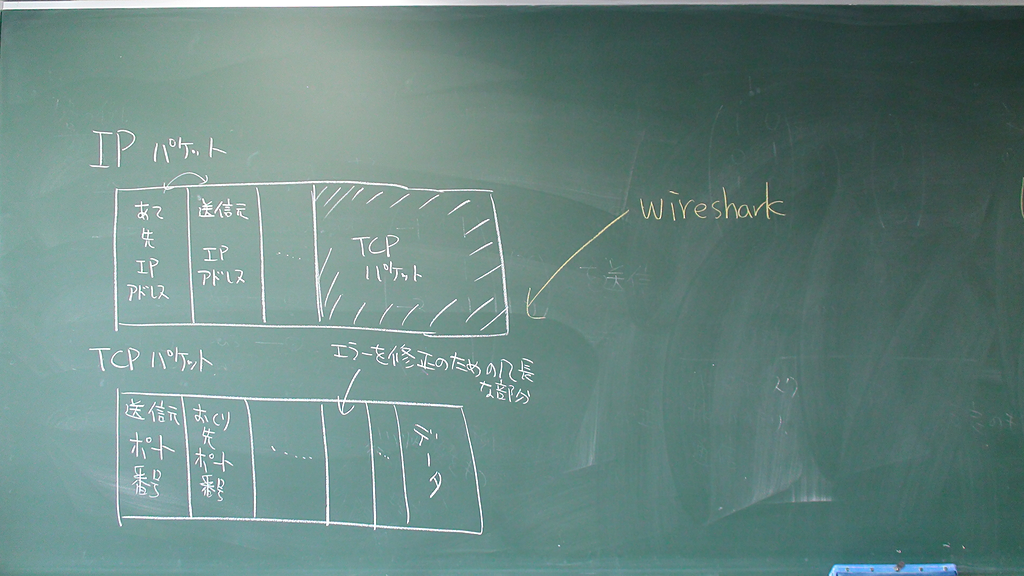 IP パケット
あて
先
IP
アドレス
送信元
IP
アドレス
.....
TCP
パケット
wireshark
TCP パケット
エラーを修正のための冗長
な部分
送信元
ポート
番号
おくり
先
ポート
番号
......
...
データ